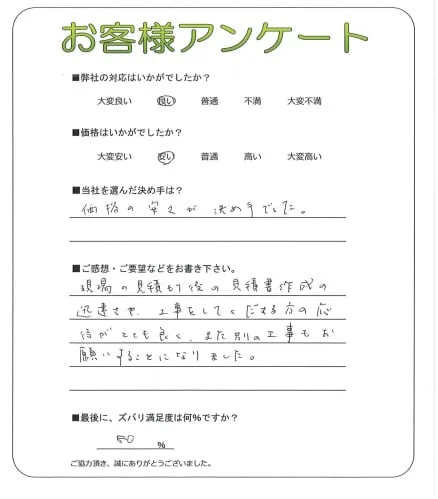 お客様アンケート
■弊社の対応はいかがでしたか？
大変良い 良い 普通 不満 大変不満
■価格はいかがでしたか？
大変安い 安い 普通 高い 大変高い
■当社を選んだ決め手は？
価格の安さが決め手でした。
■ご感想・ご要望などをお書き下さい。
現場の見積もり後の見積書作成の
迅速さや、工事をしてくださる方の応
待がとても良く、また別の工事もお
願いすることになりました。
■最後に、ズバリ満足度は何％ですか？
80 ％
ご協力頂き、誠にありがとうございました。